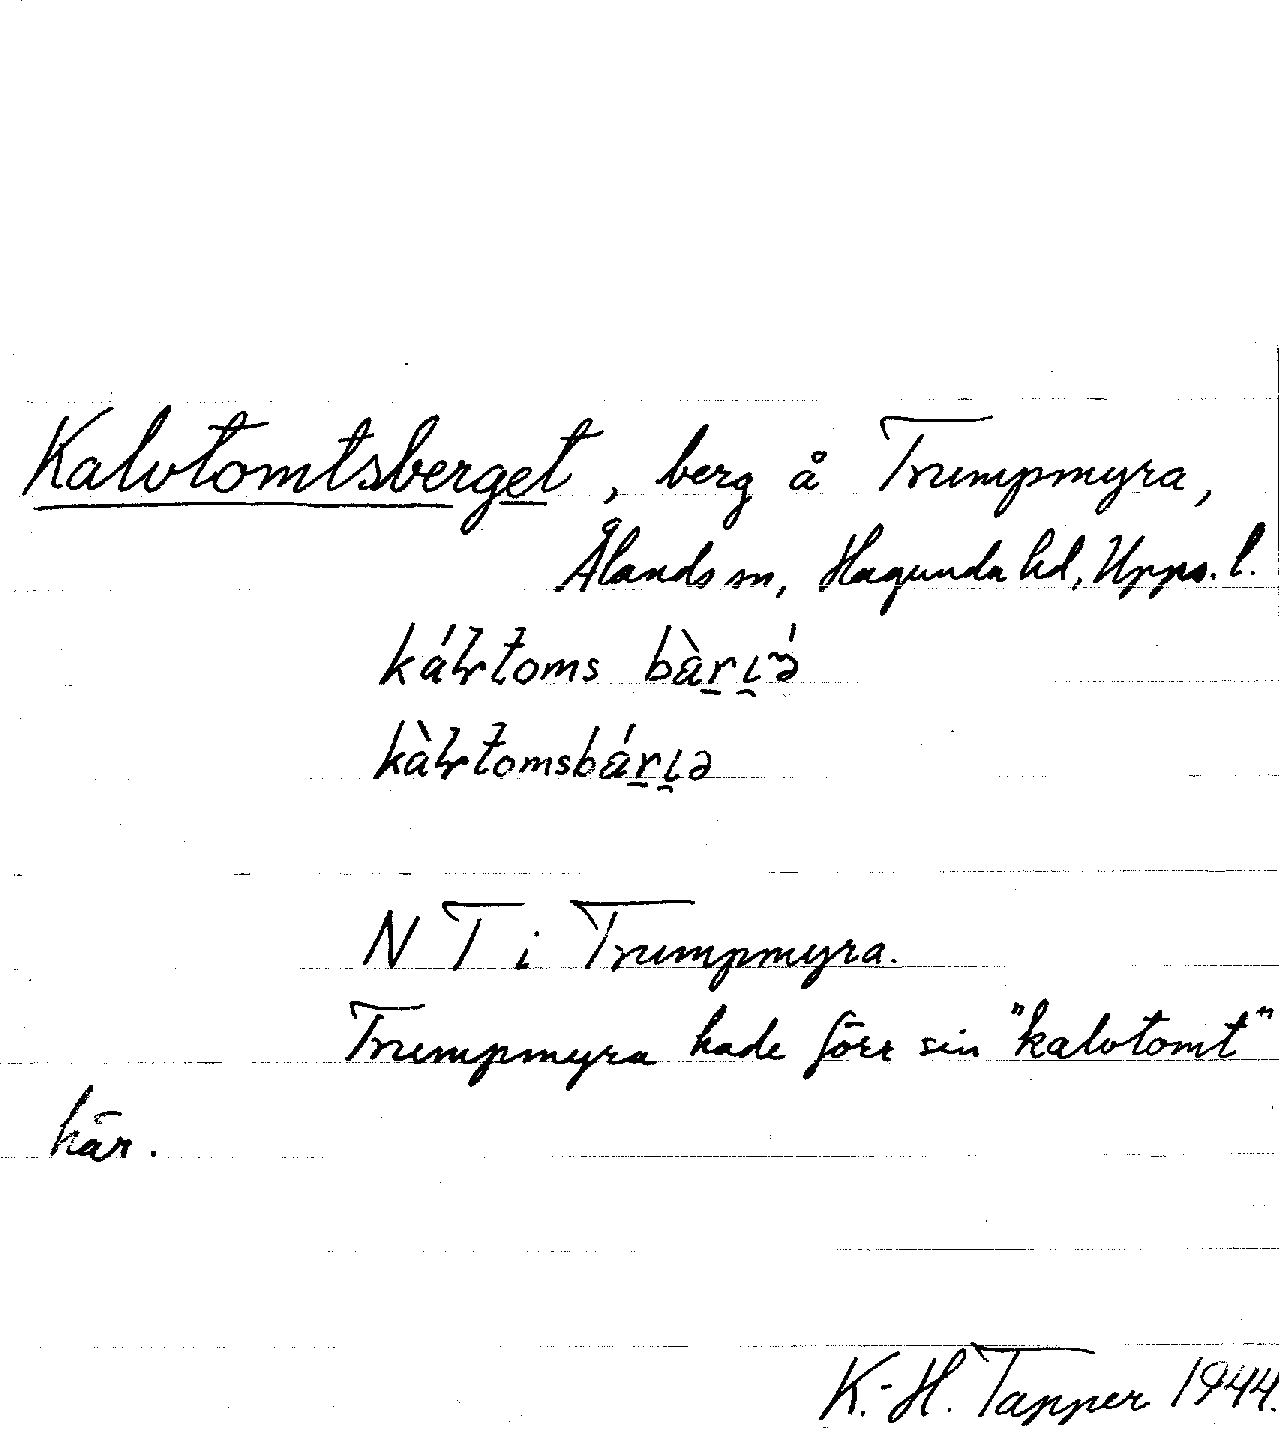 Kalvtomtsberget, berg å Trumpmyra,
Ålands sn, Hagunda hd, Upps. l.
N T i Trumpmyra.
Trumpmyra hade förr sin "kalvtomt"
här.
K.-H. Tapper 1944.